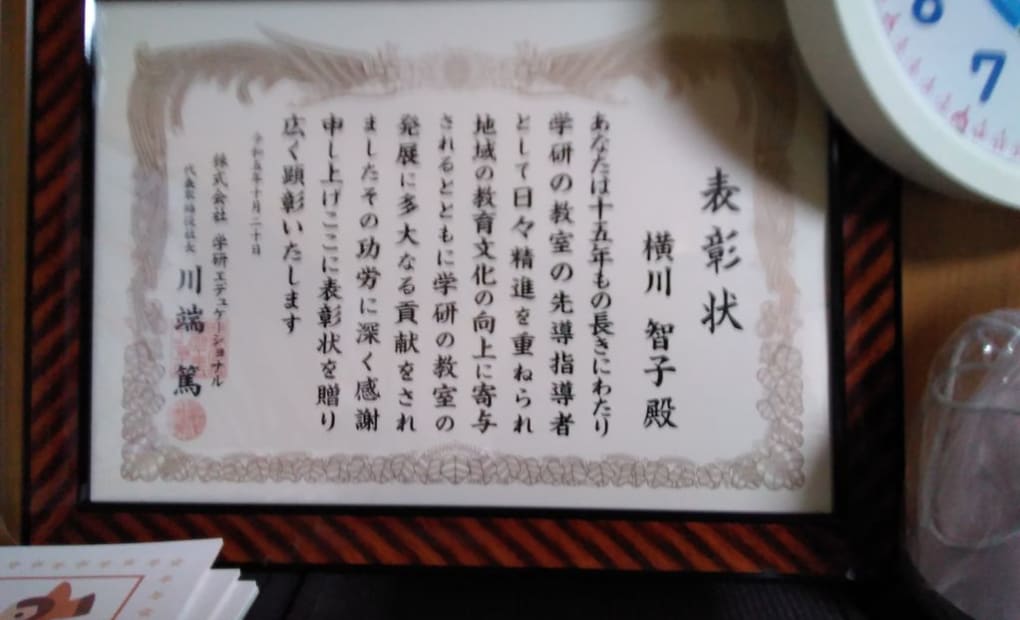 表彰状
横川 智子 殿
あなたは十五年もの長きにわたり
学研の教室の先導指導者
として日々精進を重ねられ
地域の教育文化の向上に寄与
されるとともに学研の教室の
発展に多大なる貢献をされ
ましたその功労に深く感謝
申し上げここに表彰状を贈り
広く顕彰いたします
令和五年十月二十日
株式会社 学研エデュケーショナル
代表取締役社長 川端 篤
8
7